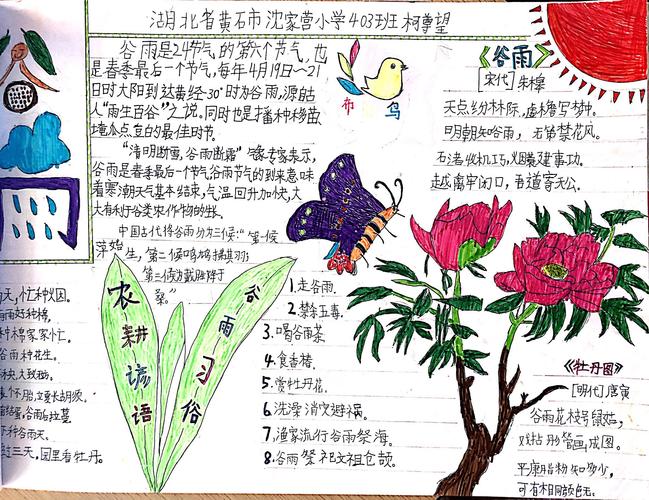 湖北省黄石市沈家营小学403班柯尊望
谷雨
谷雨是24节气的第六个节气,也
是春季最后一个节气,每年4月19日~21
日时太阳到达黄经30°时为谷雨,源自古
人“雨生百谷”之说。同时也是播种移苗
埯瓜点豆的最佳时节。
“清明断雪,谷雨断霜”气象专家表示,
谷雨是春季最后一个节气谷雨节气的到来意味
着寒潮天气基本结束,气温回升加快,大
大有利于谷类农作物的生长
中国古代将谷雨分为三候:“第一候
萍始生,第二候鸣鸠拂其羽;
第三候为戴胜降于
桑”
布 鸟
《谷雨》
[宋代] 朱槔
天点纷林际,虚檐写梦中。
明朝知谷雨,无策禁花风。
石渚收机巧,烟蓑建事功。
越禽牢闭口,吾道寄天公。
农耕谚语
谷雨习俗
天,忙种烟。
谷雨种花生。
谷雨天。
过三天,园里看牡丹。
1.走谷雨。
2.禁杀五毒。
3.喝谷雨茶
4.食香椿。
5.赏牡丹花。
6.洗澡消灾避祸。
7.渔家流行谷雨祭海。
8.谷雨祭祀文祖仓颉。
《牡丹图》
[明代] 唐寅
谷雨花枝号鼠姑,
戏拈彤管画成图。
平康脂粉知多少,
可有相同颜色无。